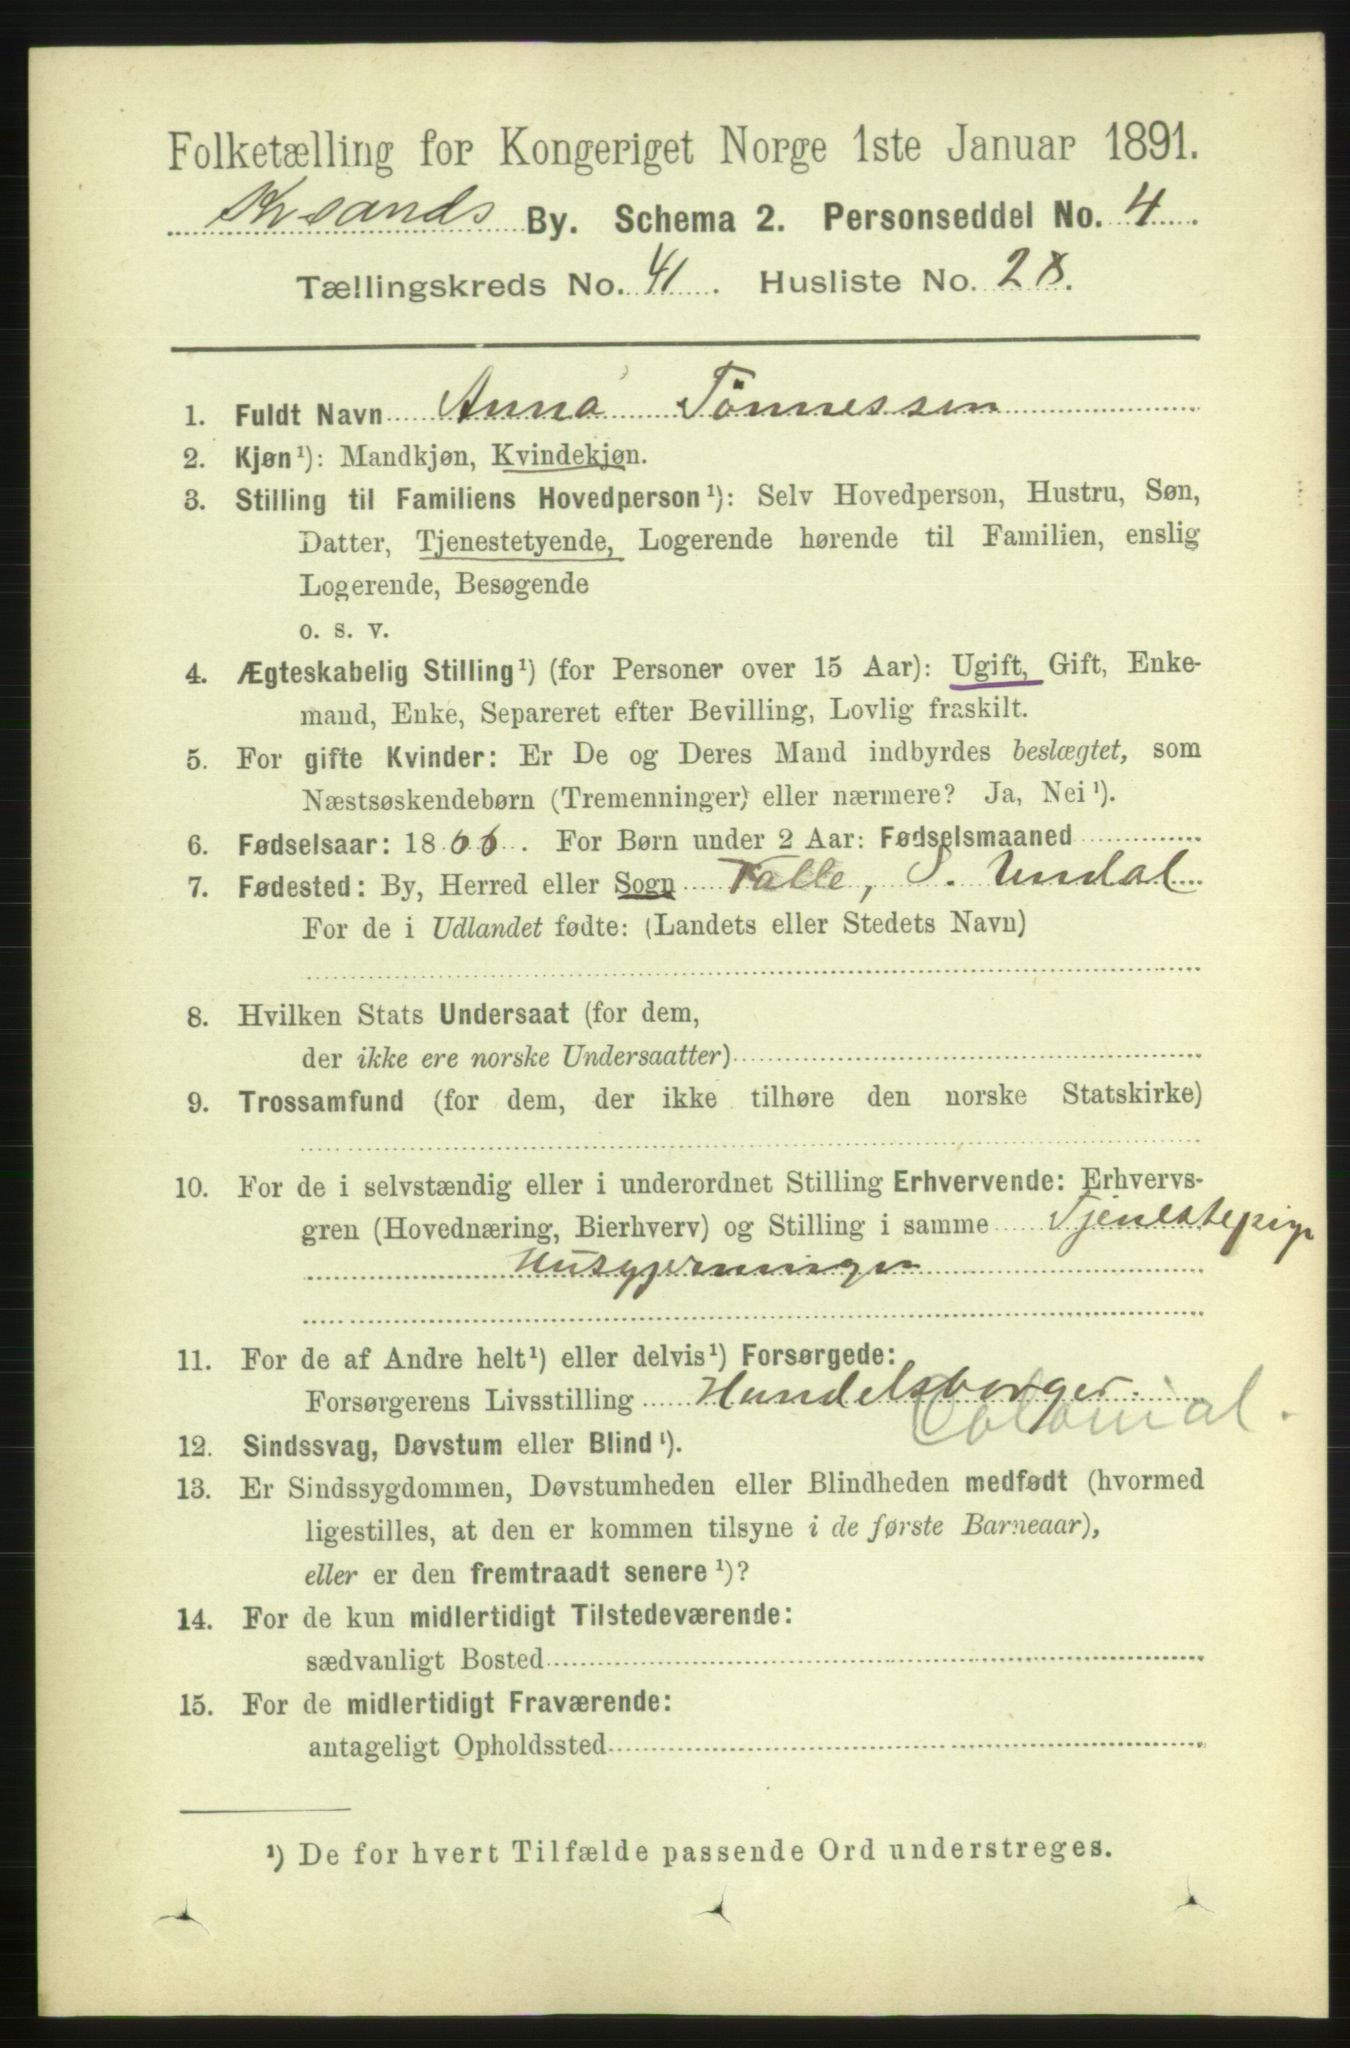 Folketælling for Kongeriget Norge 1ste Januar 1891.
Krsands By. Schema 2. Personseddel No. 4
Tællingskreds No. 41. Husliste No. 28.
1. Fuldt Navn Anna Tønnessen
2. Kjøn¹): Mandkjøn, Kvindekjøn.
3. Stilling til Familiens Hovedperson¹): Selv Hovedperson, Hustru, Søn,
Datter, Tjenestetyende, Logerende hørende til Familien, enslig
Logerende, Besøgende
o. s. v.
4. Ægteskabelig Stilling¹) (for Personer over 15 Aar): Ugift, Gift, Enke-
mand, Enke, Separeret efter Bevilling, Lovlig fraskilt.
5. For gifte Kvinder: Er De og Deres Mand indbyrdes beslægtet, som
Næstsøskendebørn (Tremenninger) eller nærmere? Ja, Nei¹).
6. Fødselsaar: 1866. For Børn under 2 Aar: Fødselsmaaned
7. Fødested: By, Herred eller Sogn Valle, S. Undal
For de i Udlandet fødte: (Landets eller Stedets Navn)
8. Hvilken Stats Undersaat (for dem,
der ikke ere norske Undersaatter)
9. Trossamfund (for dem, der ikke tilhøre den norske Statskirke)
10. For de i selvstændig eller i underordnet Stilling Erhvervende: Erhvervs-
gren (Hovednæring, Bierhverv) og Stilling i samme Tjenestepige
Husgjerninger
11. For de af Andre helt¹) eller delvis¹) Forsørgede:
Forsørgerens Livsstilling Handelsborger.
Colonial.
12. Sindssvag, Døvstum eller Blind¹).
13. Er Sindssygdommen, Døvstumheden eller Blindheden medfødt (hvormed
ligestilles, at den er kommen tilsyne i de første Barneaar),
eller er den fremtraadt senere¹)?
14. For de kun midlertidigt Tilstedeværende:
sædvanligt Bosted
15. For de midlertidigt Fraværende:
antageligt Opholdssted
¹) De for hvert Tilfælde passende Ord understreges.